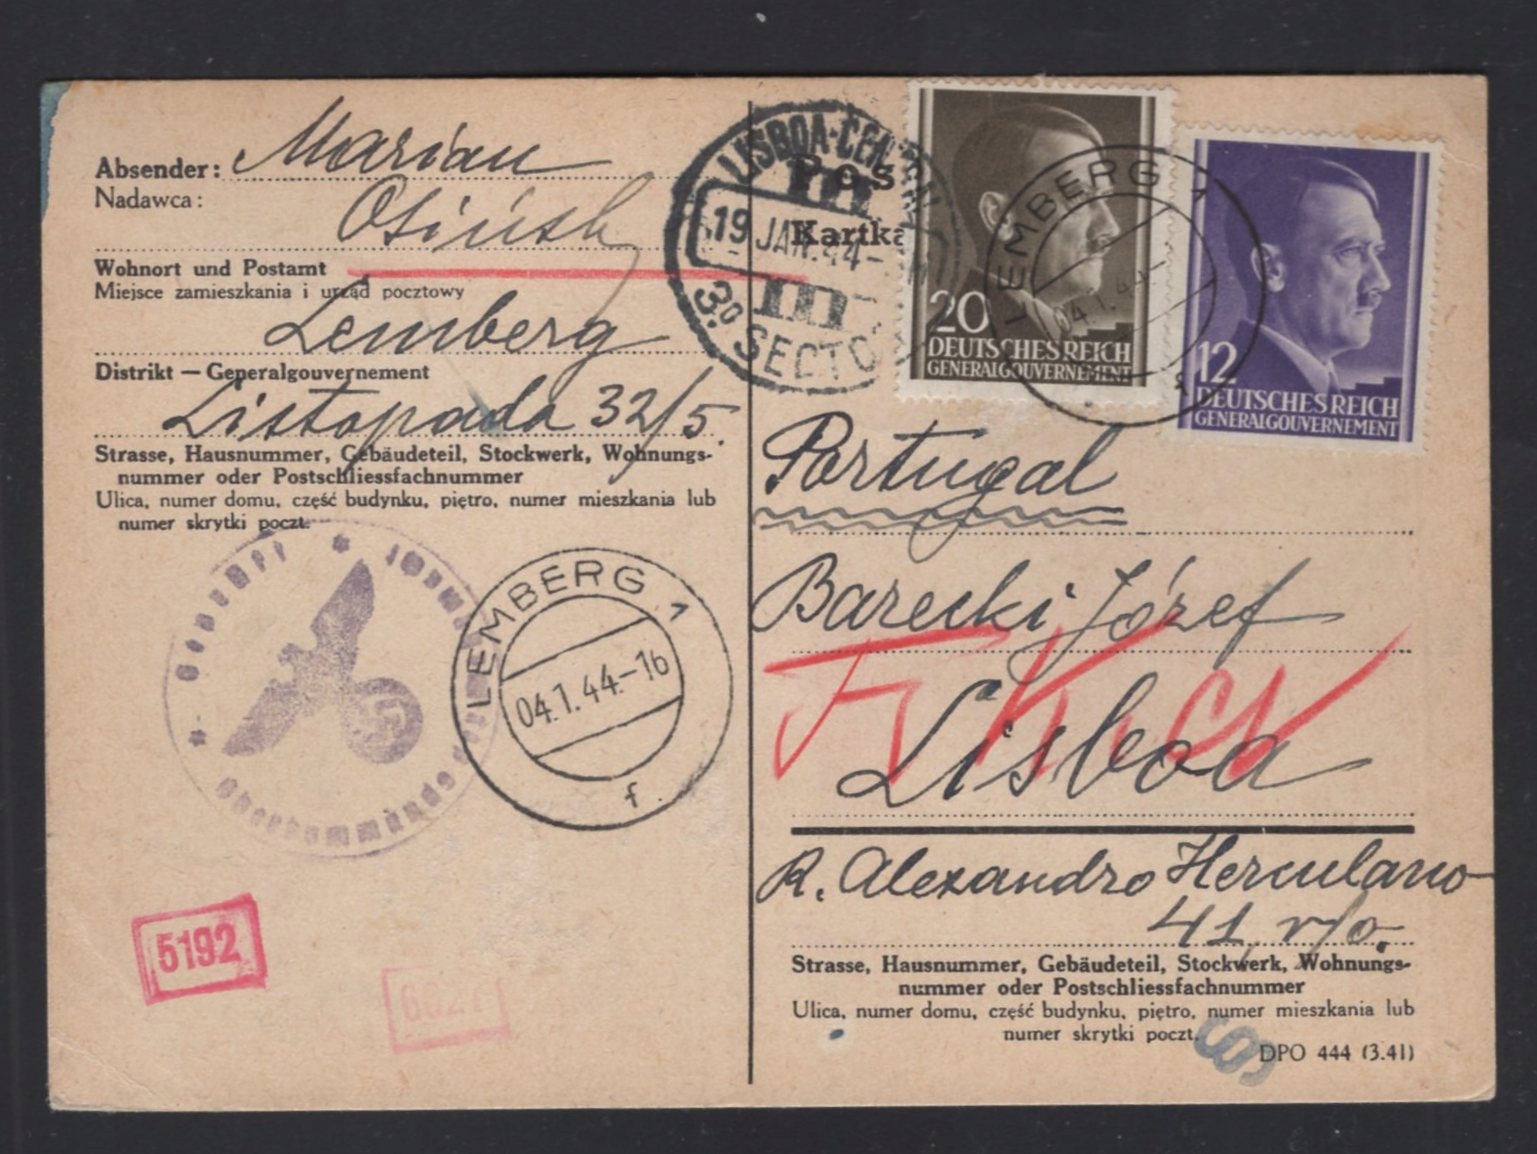 Absender: Marian
Nadawca: Osiński
Wohnort und Postamt
Miejsce zamieszkania i urząd pocztowy
Lemberg
Distrikt — Generalgouvernement
Listopada 32/5.
Strasse, Hausnummer, Gebäudeteil, Stockwerk, Wohnungs-
nummer oder Postschliessfachnummer
Ulica, numer domu, część budynku, piętro, numer mieszkania lub
numer skrytki poczt.
Geprüft
Oberkommando
LEMBERG 1
04.1.44.-16
f
5192
LISBOA-CENTRAL
19 JAN. 44
3º SECTO
Pos
Kartka
20
DEUTSCHES REICH
GENERALGOUVERNEMENT
LEMBERG 1
04.1.44.-
12
DEUTSCHES REICH
GENERALGOUVERNEMENT
Portugal
Barecki Józef
Lisboa
R. Alexandro Herculano
41 r/o.
Strasse, Hausnummer, Gebäudeteil, Stockwerk, Wohnungs-
nummer oder Postschliessfachnummer
Ulica, numer domu, część budynku, piętro, numer mieszkania lub
numer skrytki poczt.
DPO 444 (3.41)